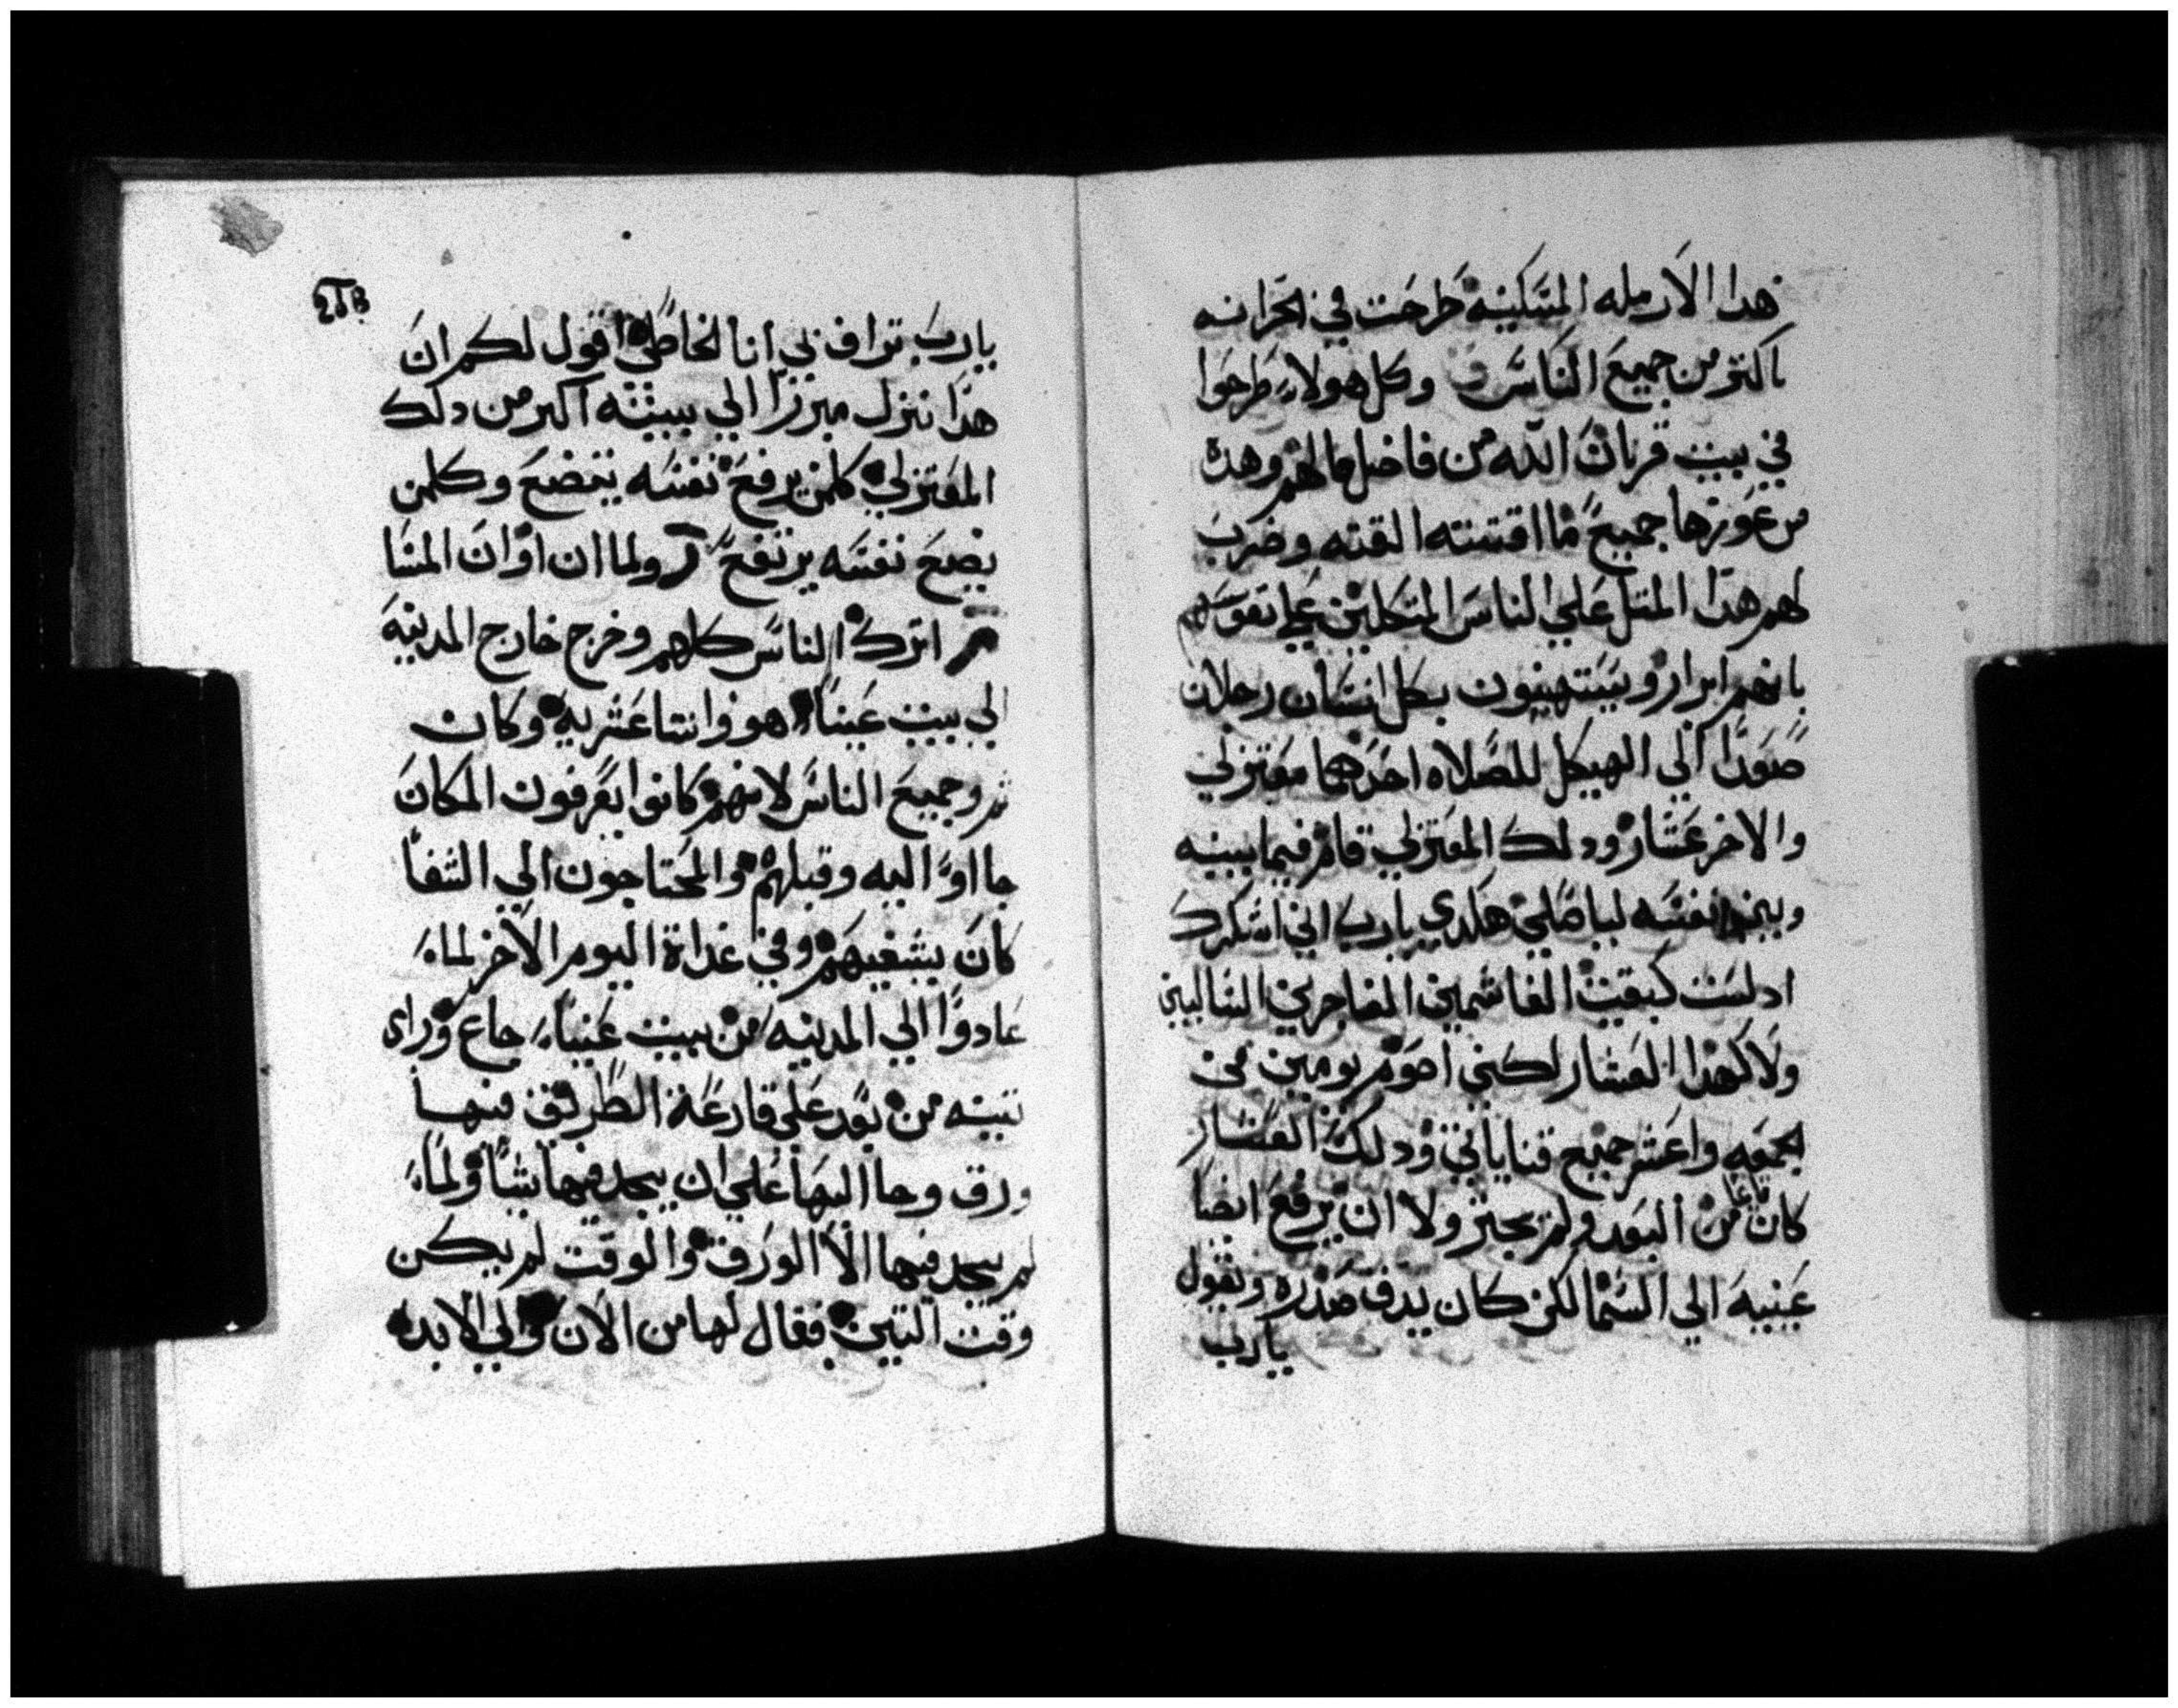 هدا الارمله المسكينه طرحت في الخزانه
اكتر من جميع الناس وكل هولاء طرحوا
في بيت قربان الله من فاضل مالهم وهده
من عوزها جميع ما اقتنته القته وضرب
لهم هدا المتل علي الناس المتكلين علي نفوسهم
بانهم ابرار ويستهينون بكل انسان رجلان
صعدا الي الهيكل للصلاه احدهما معتزلي
والاخر عشار ودلك المعتزلي قام فيما بينه
وبين نفسه ليصلي هكدي يارب اني اشكرك
اد لست كبقيت الغاشمين الفاجرين السالبين
ولا كهدا العشار لكني اصوم يومين في
الجمعه واعشر جميع قناياتي ودلك العشار
كان قايما من البعد ولم يجتر ولا ان يرفع ايضا
عينيه الي السما لكن كان يدق صدره ويقول
يارب
يارب تراف بي انا الخاطي اقول لكم ان
هدا نزل مبررا الي بيته اكبر من دلك
المعتزلي كلمن يرفع نفسه يتضع وكلمن
يضع نفسه يرتفع ولما ان اوان المسا
اترك الناس كلهم وخرج خارج المدينه
الي بيت عنيا هو واتنا عشريه وكان
تم وجميع الناس لانهم كانوا يعرفون المكان
جااوا اليه وقبلهم والمحتاجون الي الشفا
كان يشفيهم وفي غداة اليوم الاخر لما
عادوا الي المدينه من بيت عنيا جاع وراي
تينه من بعد علي قارعة الطريق فيها
ورق وجا اليها علي ان يجد فيها شيا ولما
لم يجد فيها الا الورق والوقت لم يكن
وقت التين فقال لها من الان والي الابد